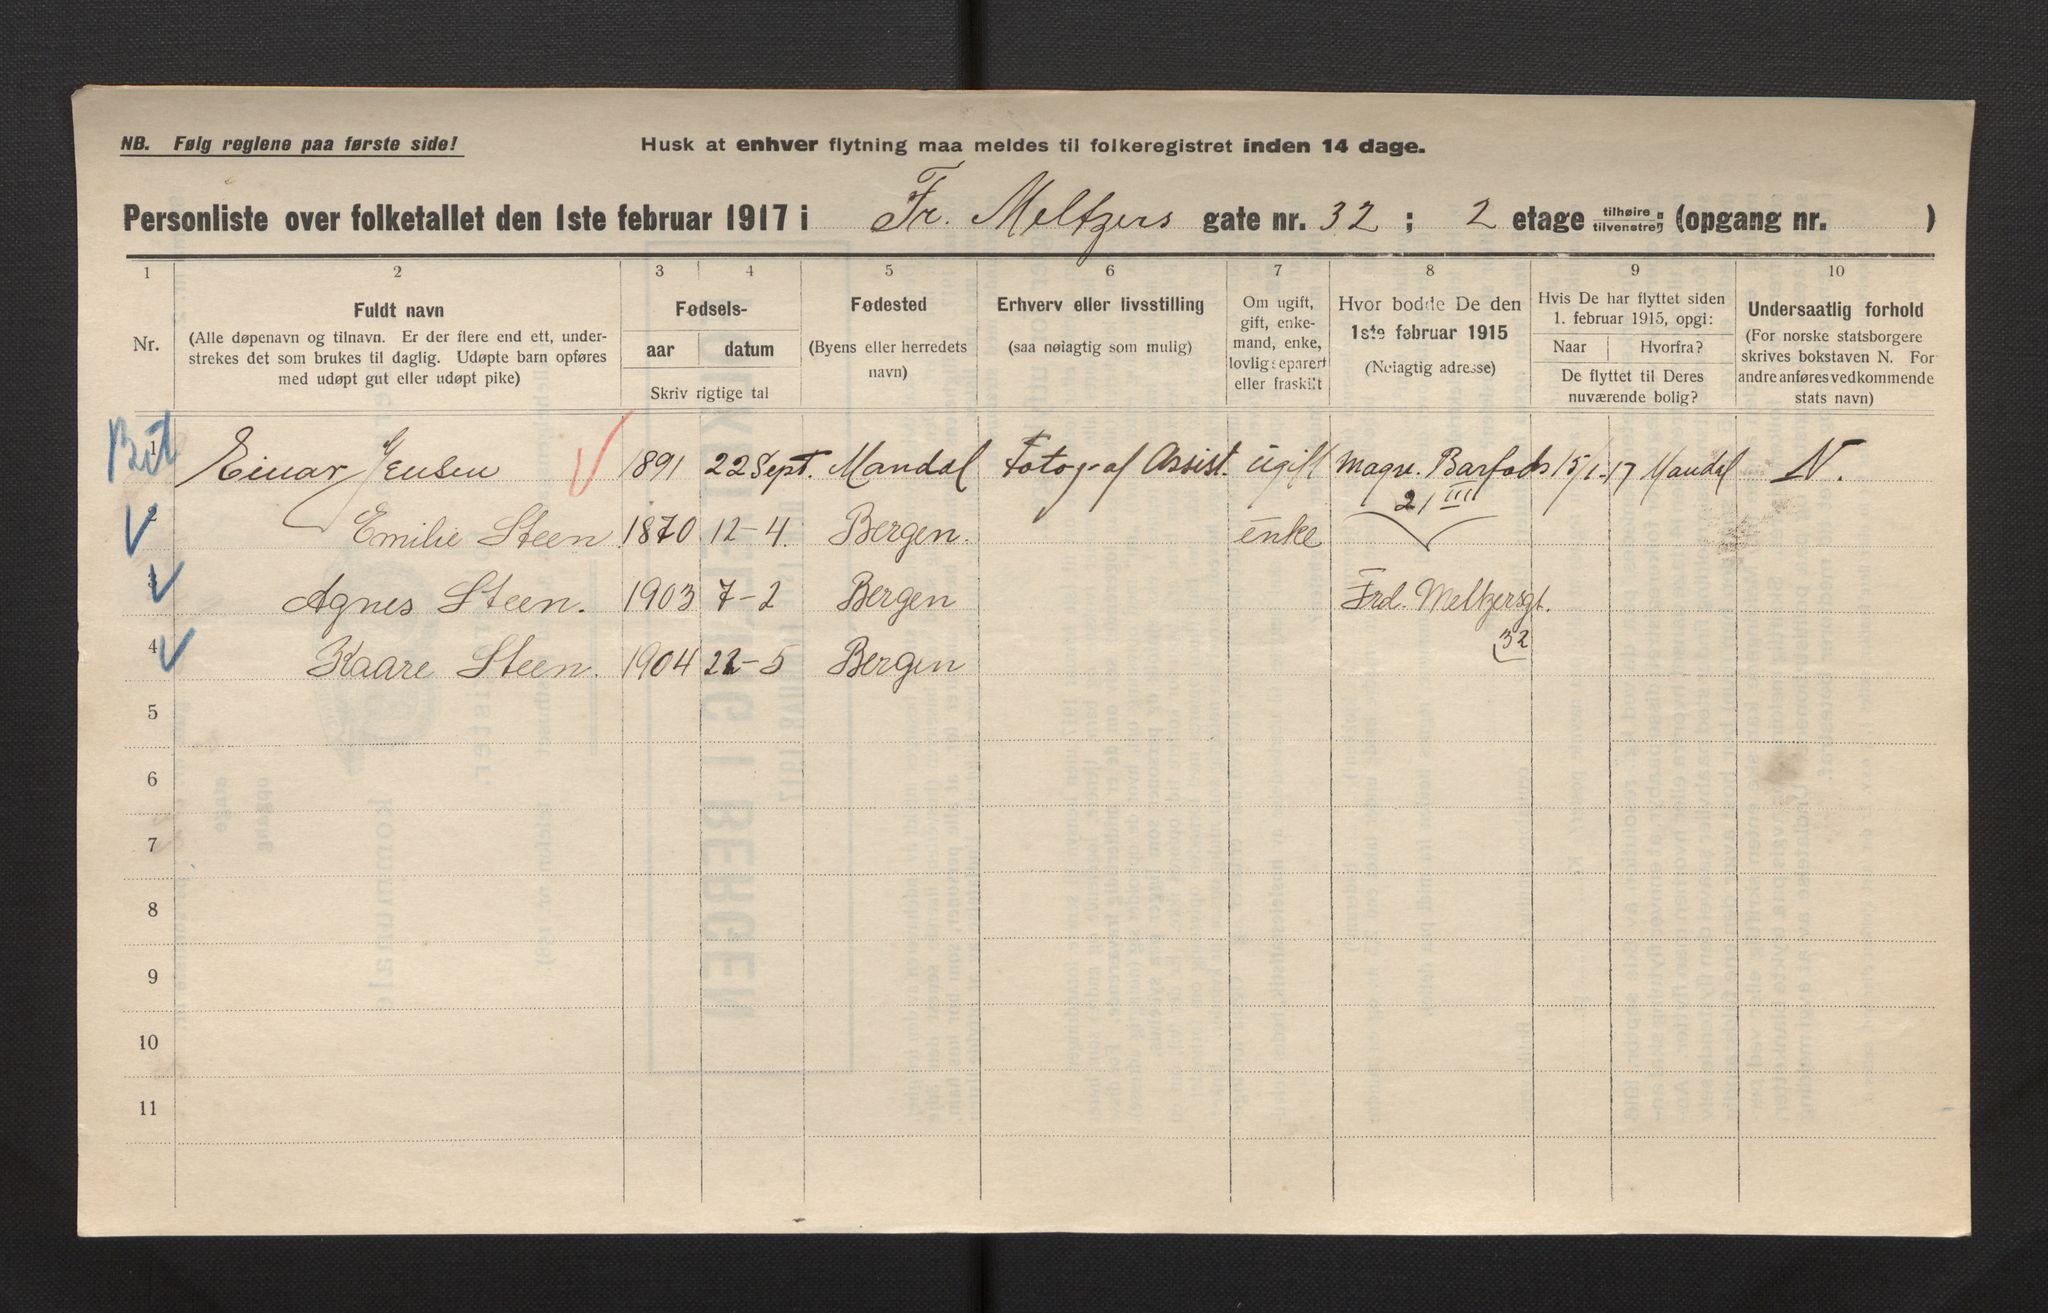 NB. Følg reglene paa første side! Husk at enhver flytning maa meldes til folkeregistret inden 14 dage.
Personliste over folketallet den 1ste februar 1917 i Fr. Meltzers gate nr. 32 ; 2 etage tilhøire tilvenstre; (opgang nr. )
1 2 3 4 5 6 7 8 9 10
Nr.
Fuldt navn
(Alle døpenavn og tilnavn. Er der flere end ett, under-
strekes det som brukes til daglig. Udøpte barn opføres
med udøpt gut eller udøpt pike)
Fødsels-
aar datum
Skriv rigtige tal
Fødested
(Byens eller herredets
navn)
Erhverv eller livsstilling
(saa nøiagtig som mulig)
Om ugift,
gift, enke-
mand, enke,
lovlig separert
eller fraskilt
Hvor bodde De den
1ste februar 1915
(Nøiagtig adresse)
Hvis De har flyttet siden
1. februar 1915, opgi:
Naar Hvorfra?
De flyttet til Deres
nuværende bolig?
Undersaatlig forhold
(For norske statsborgere
skrives bokstaven N. For
andre anføres vedkommende
stats navn)
1 Einar Jensen 1891 22 Sept. Mandal Fotograf Assist. ugift Magn. Barfods 15/1-17 Mandal N.
21 III
2 Emilie Steen 1870 12-4. Bergen. enke
3 Agnes Steen. 1903 7-2 Bergen Frd. Meltzersgt.
32
4 Kaare Steen. 1904 22-5 Bergen
5
6
7
8
9
10
11